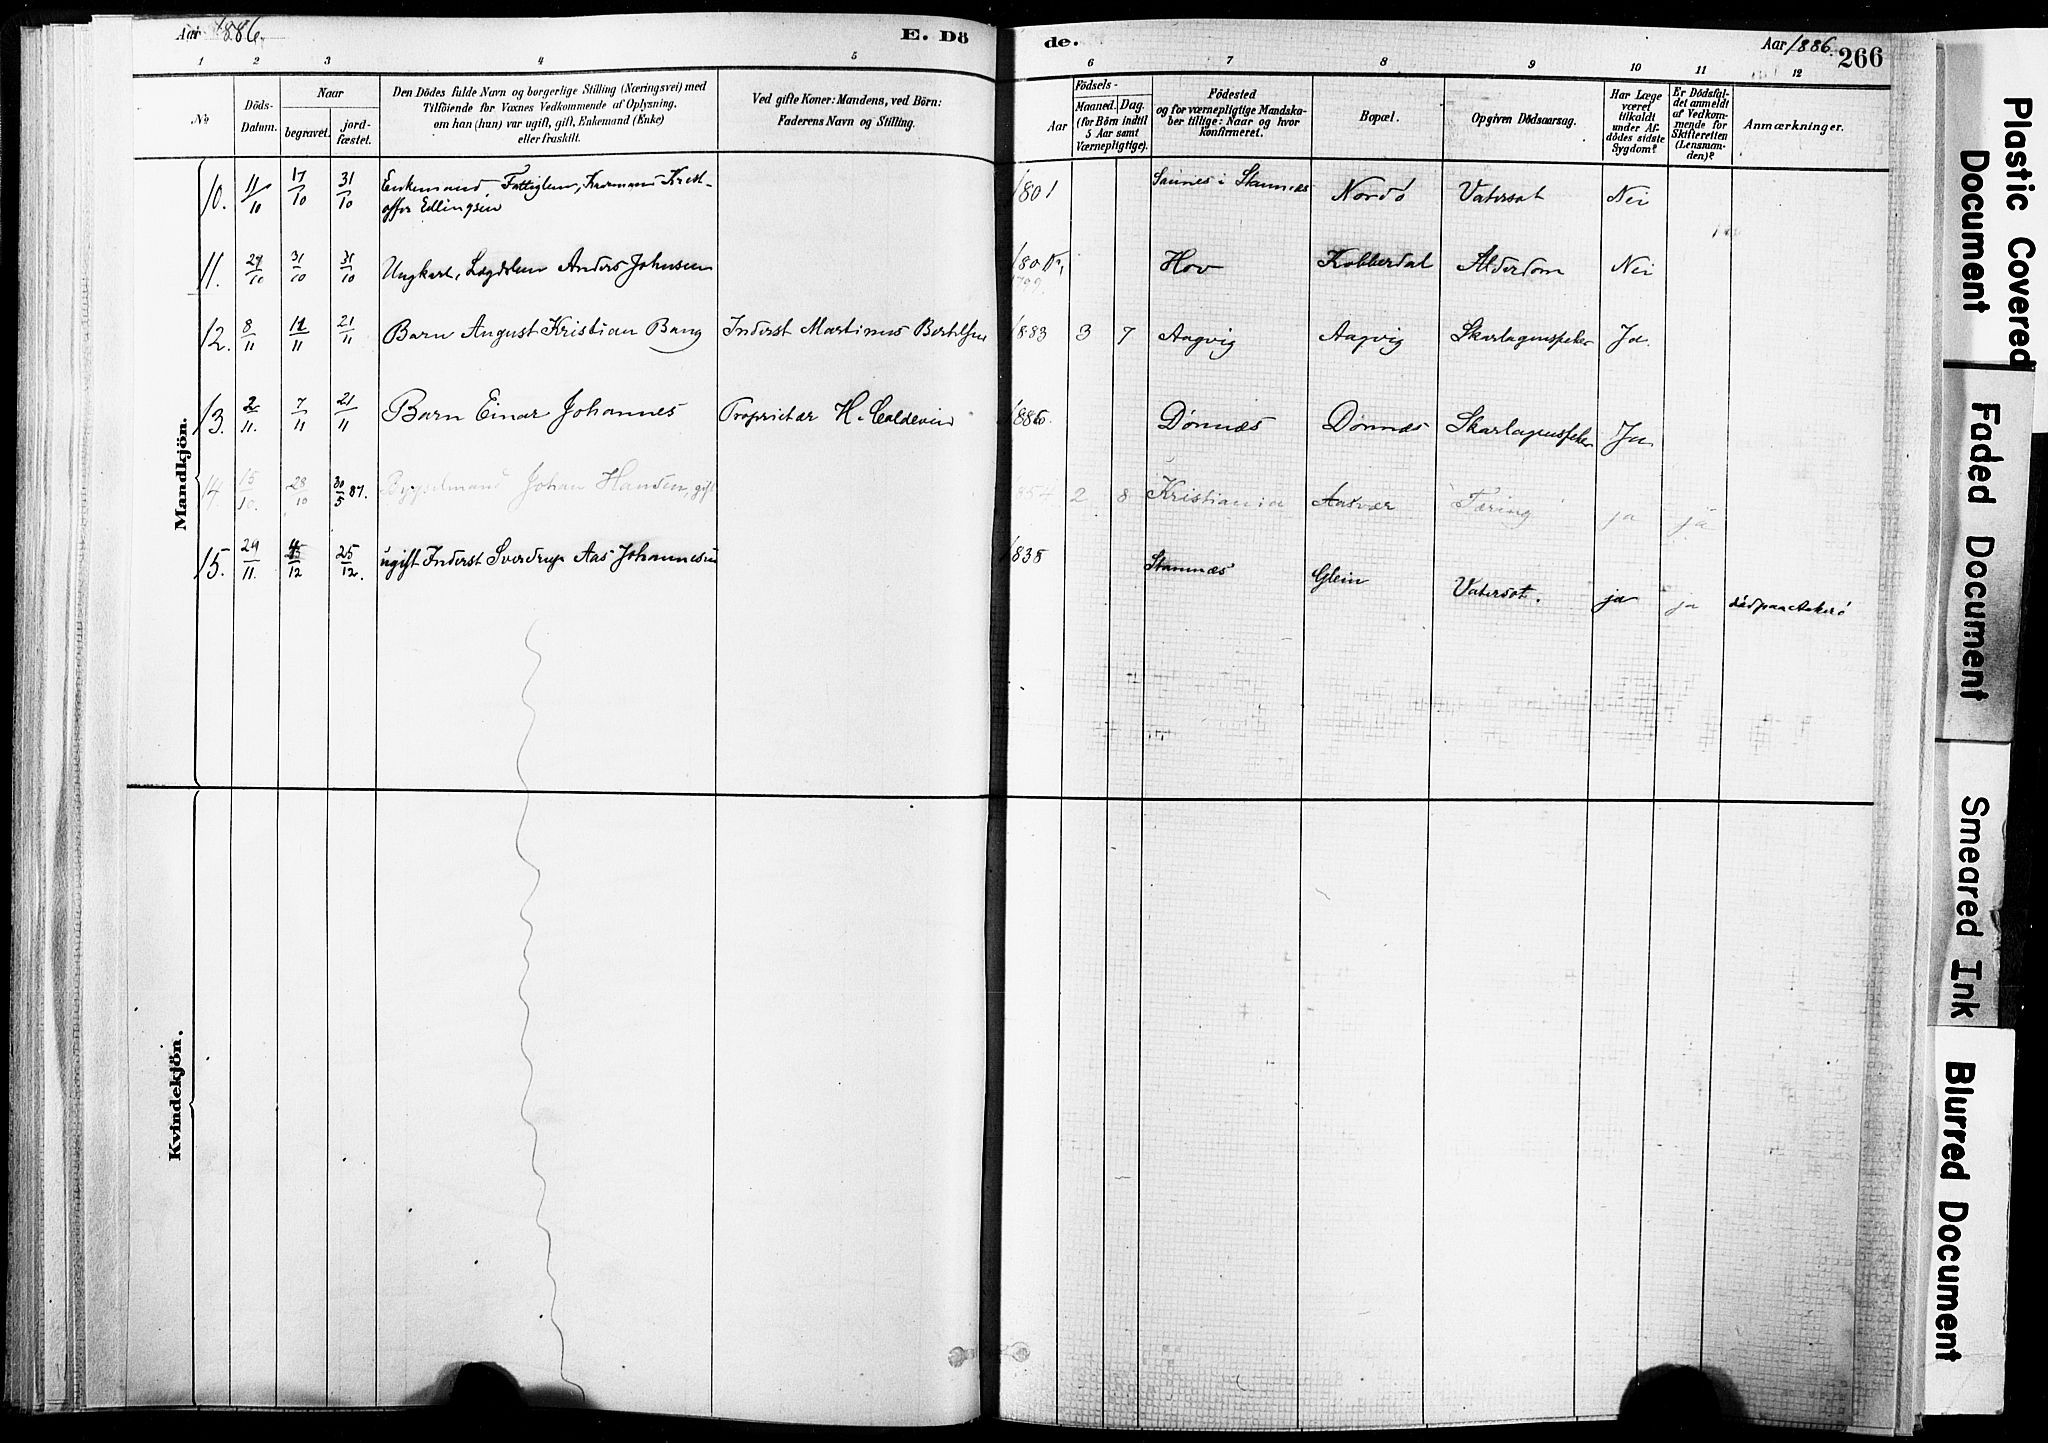 Aar 1886.
E. Dö
de.
Aar 1886.
266
1 2 3 4 5 6 7 8 9 10 11 12
No
Döds-
Datum.
Naar
begravet.
jord-
fæstet.
Den Dödes fulde Navn og borgerlige Stilling (Næringsvei) med
Tilföiende for Voxnes Vedkommende af Oplysning,
om han (hun) var ugift, gift, Enkemand (Enke)
eller fraskilt.
Ved gifte Koner: Mandens, ved Börn:
Faderens Navn og Stilling.
Födsels-
Aar
Maaned. Dag.
(for Börn indtil
5 Aar samt
Værnepligtige).
Födested
og for værnepligtige Mandska-
ber tillige: Naar og hvor
Konfirmeret.
Bopæl.
Opgiven Dödsaarsag.
Har Læge
været
tilkaldt
under Af-
dödes sidste
Sygdom?
Er Dödsfal-
det anmeldt
af Vedkom-
mende for
Skifteretten
(Lensman-
den)?
Anmærkninger.
Mandkjön.
10. 11/10 17/10 31/10 Enkemand, Fattiglem, Krist-
offer Edlingsen 1801 i Stamnæs Nordö Vatersot Nei
11. 31/10 31/10 Ungkarl, Lægdslem Anders Johnsen 1801 Hov Kobberdal Alderdom Nei
1799.
12. 8/11 21/11 Barn August Kristian Bang Inderst Martinus Bertelsen 1883 3 7 Aagvig Aagvig Skarlagensfeber Ja.
13. 2/11. 7/11 21/11 Barn Einar Johannes Proprietær H. Coldevin 1886. Dønnæs Dønnæs Skarlagensfeber Ja
14. 15/10. 28/10 30/5 87. Bygselmand Johan Hansen, gift 1854 2 8 Kristiania Aasvær Tæring ja ja
15. 29/11. 25/12. ugift Inderst Sverdrup Aas Johannesen 1835 Stamnæs Glein Vatersot. ja ja död paa
Kvindekjön.
Plastic Covered
Document
Faded Document
Smeared Ink
Blurred Document